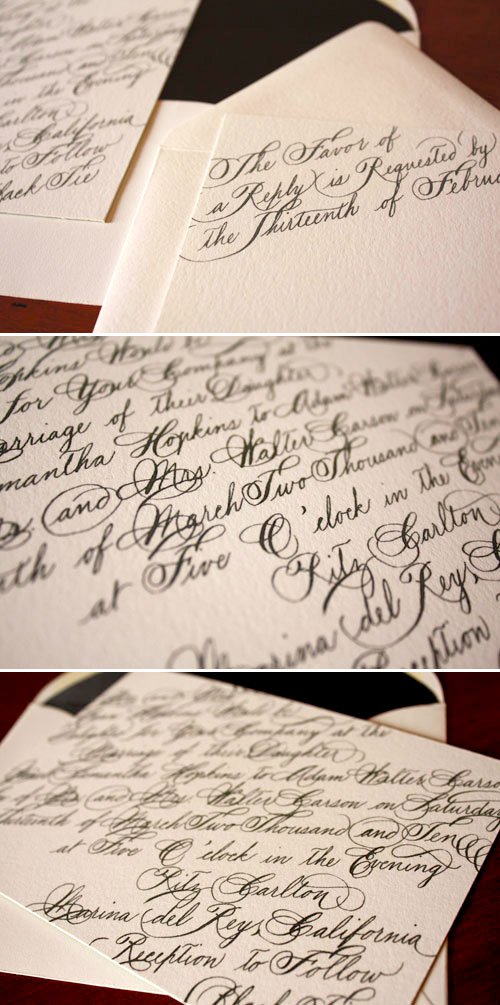 in the Evening
Carlton
California
to Follow
Black Tie
The Favor of
a Reply is Requested by
the Thirteenth of
for Your Company at the
Marriage of their Daughter
Hopkins to Adam Walter
and Mrs. Walter Carson on
of March Two Thousand and
at Five O'clock in the
Ritz Carlton
Marina del Rey,
Reception
for Your Company at the
Marriage of their Daughter
Samantha Hopkins to Adam Walter Carson
and Mrs. Walter Carson on Saturday
of March Two Thousand and Ten
at Five O'clock in the Evening
Ritz Carlton
Marina del Rey, California
Reception to Follow
Black Tie